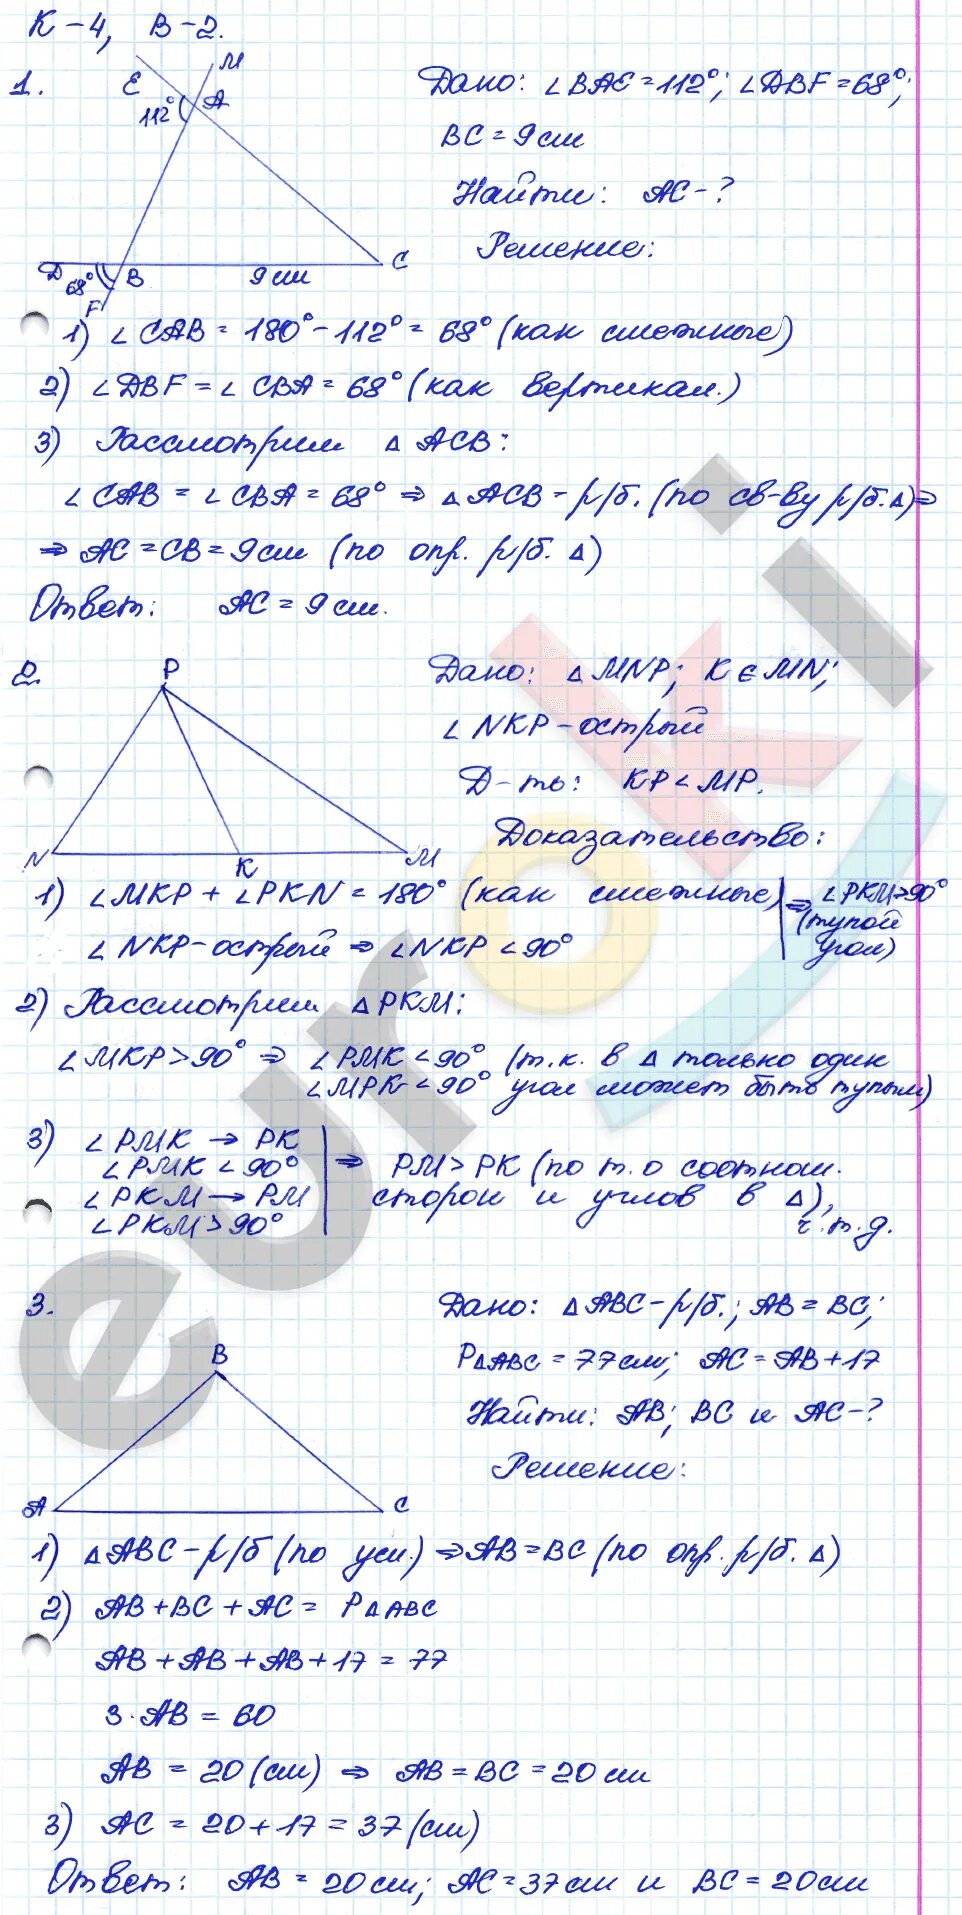 К-4, В-2.
1.
E
M
A
112°
D
68°
B
F
9 см
C
Дано: ∠BAE = 112°; ∠DBF = 68°;
BC = 9 см
Найти: AC - ?
Решение:
1) ∠CAB = 180° - 112° = 68° (как смежные)
2) ∠DBF = ∠CBA = 68° (как вертикал.)
3) Рассмотрим △ACB:
∠CAB = ∠CBA = 68° ⇒ △ACB - р/б. (по св-ву р/б.△) ⇒
⇒ AC = CB = 9 см (по опр. р/б. △)
Ответ: AC = 9 см.
2.
P
N
K
M
Дано: △MNP; K ∈ MN;
∠NKP - острый
Д-ть: KP < MP.
Доказательство:
1) ∠MKP + ∠PKN = 180° (как смежные) ⇒ ∠PKM > 90°
(тупой
угол)
∠NKP - острый ⇒ ∠NKP < 90°
2) Рассмотрим △PKM:
∠MKP > 90° ⇒ ∠PMK < 90° (т.к. в △ только один
∠MPK < 90° угол может быть тупым)
3) ∠PMK → PK
∠PMK < 90°
∠PKM → PM
∠PKM > 90°
⇒ PM > PK (по т. о соотнош.
сторон и углов в △),
ч.т.д.
3.
B
A
C
Дано: △ABC - р/б.; AB = BC;
P△ABC = 77 см; AC = AB + 17
Найти: AB; BC и AC - ?
Решение:
1) △ABC - р/б (по усл.) ⇒ AB = BC (по опр. р/б. △)
2) AB + BC + AC = P△ABC
AB + AB + AB + 17 = 77
3·AB = 60
AB = 20 (см) ⇒ AB = BC = 20 см
3) AC = 20 + 17 = 37 (см)
Ответ: AB = 20 см; AC = 37 см и BC = 20 см
euroki